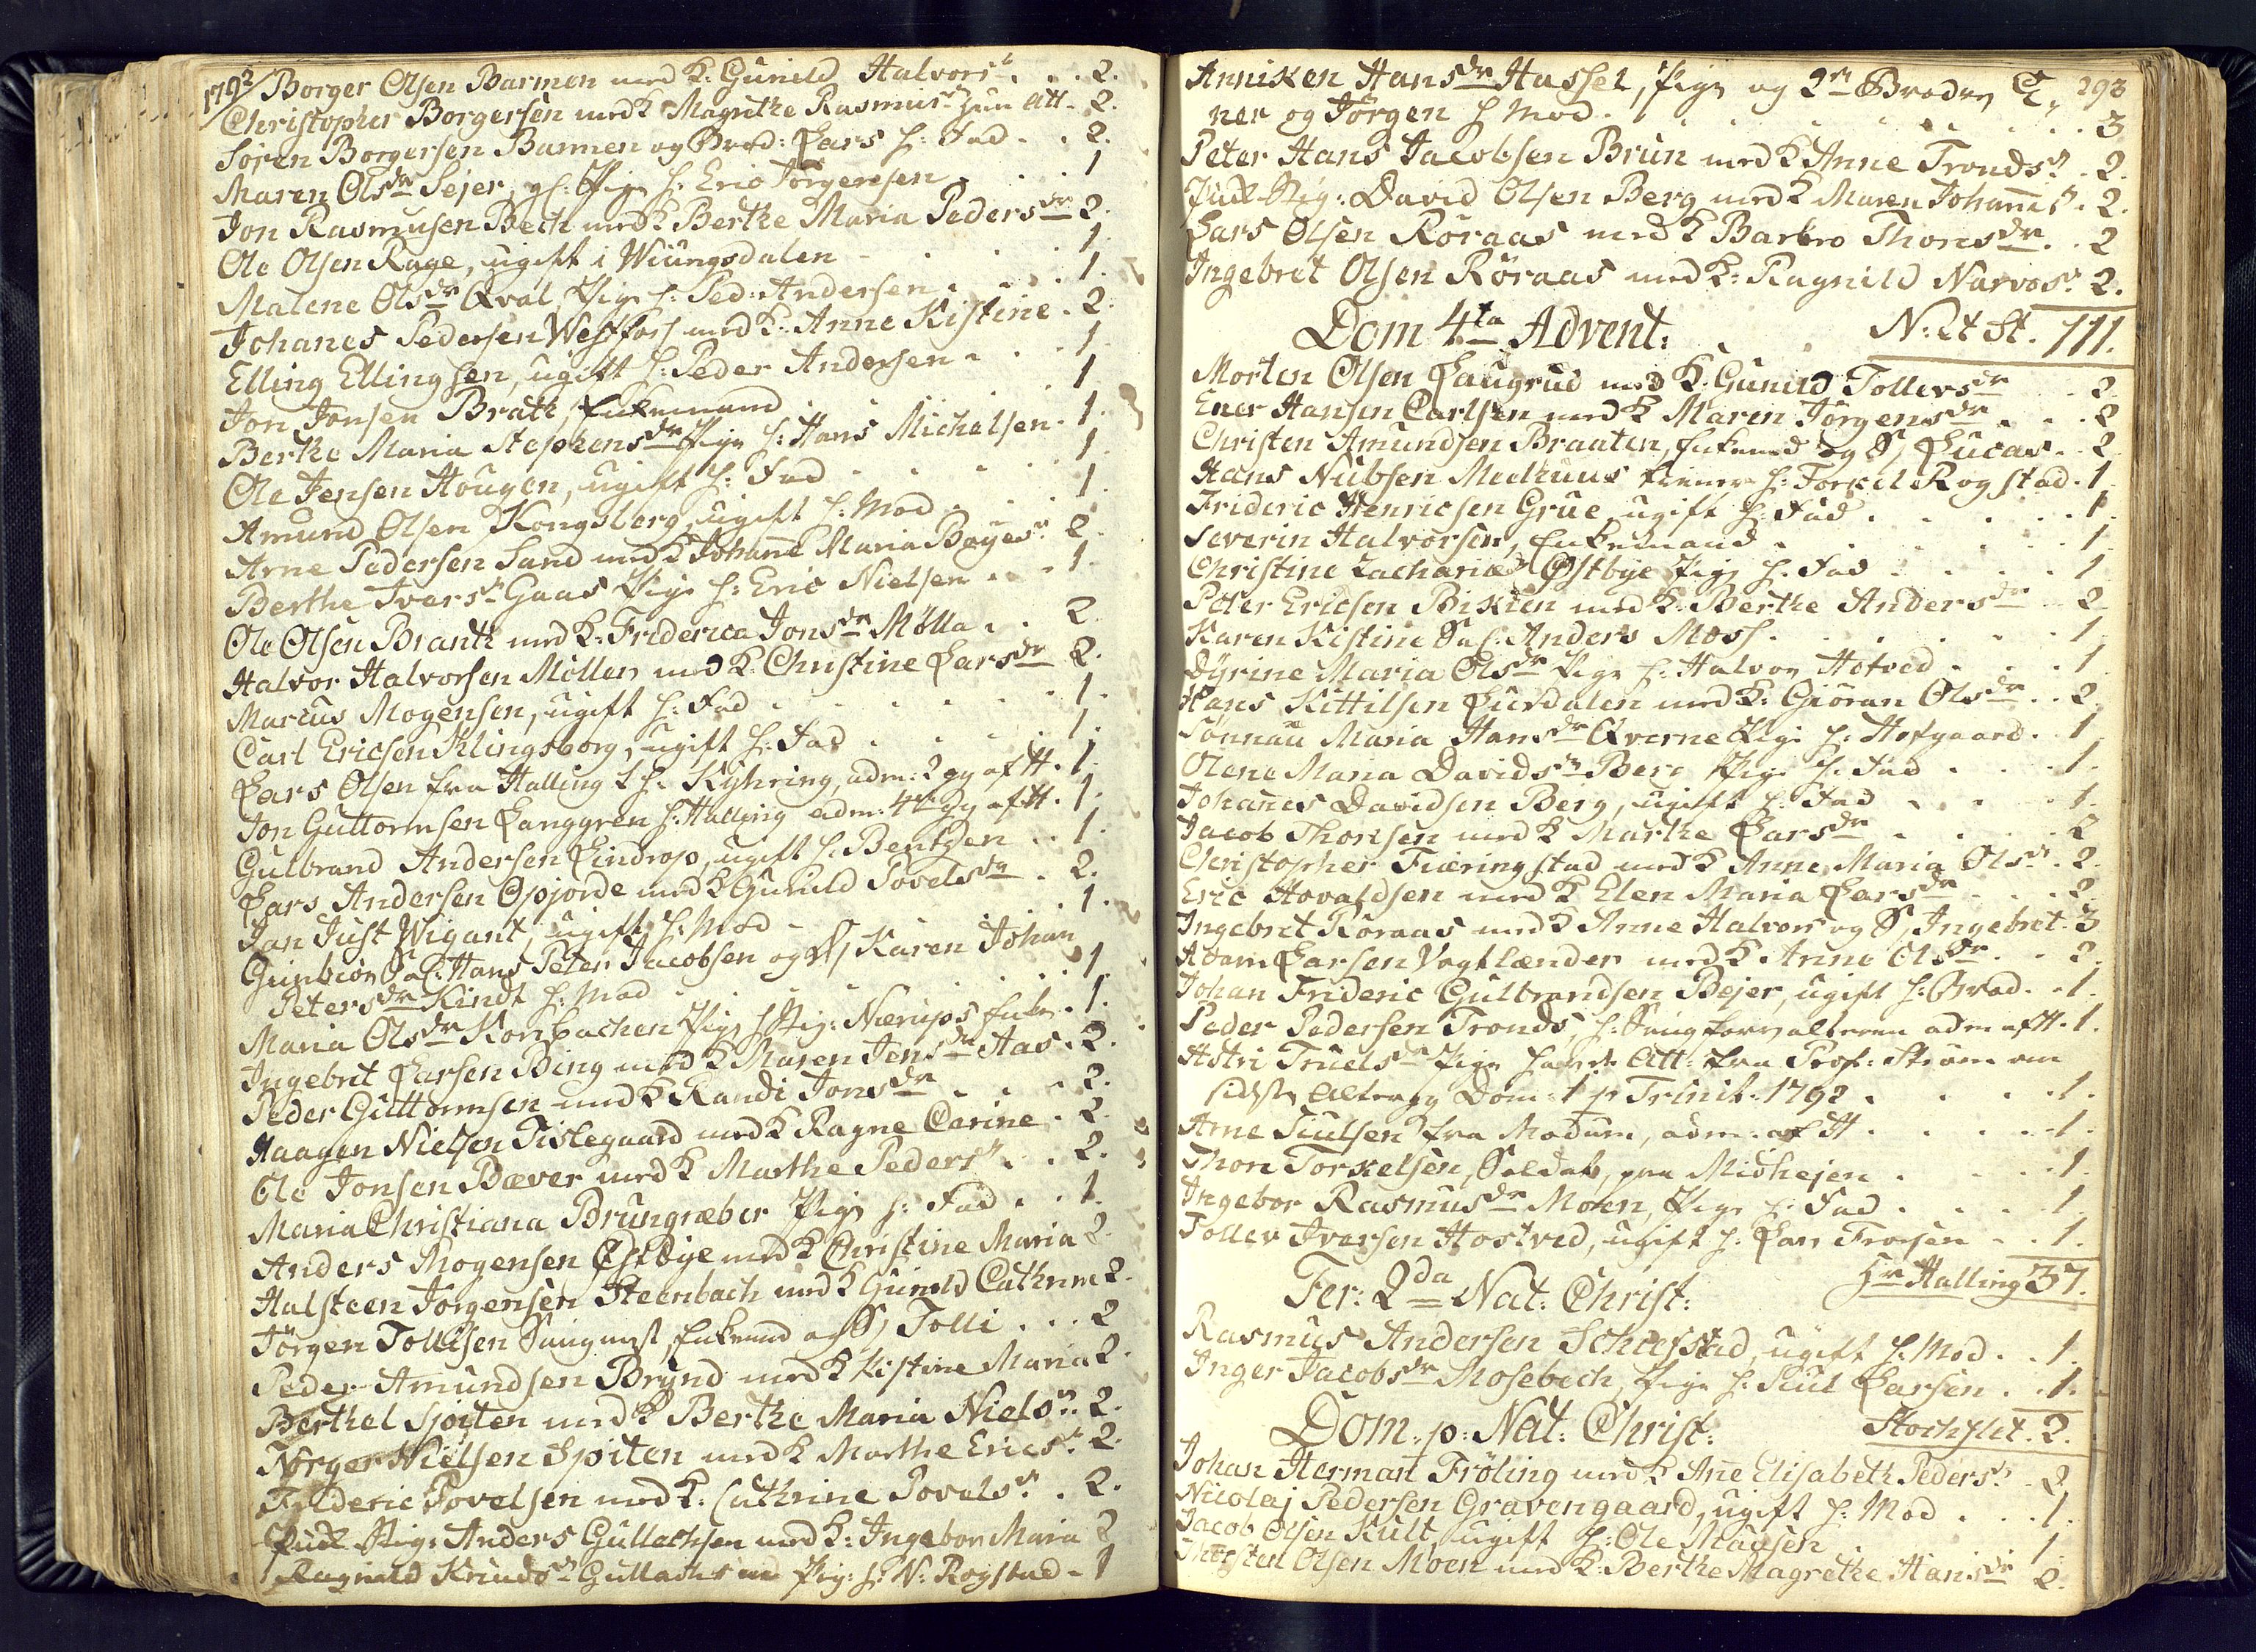 1792/ Borger Olsen Barmen med K: Gunild Halvorsr . . . 2.
Christopher Borgersen med K Magrethe Rasmusr hun Att . 2.
Søren Borgersen Barmen og Brod: Lars h: Fad . . 2.
Maren Olsdr Sejer, gl: Pige h: Eric Jørgensen . . 1
Jon Rasmusen Bech med K Berthe Maria Pedersdr 2.
Ole Olsen Rage, ugift i Wiungsdalen . . . 1.
Malene Olsdr Qval Pige h: Ped: Andersen . . . 1.
Johanes Pedersen Westfoss med K: Anne Kistine . 2.
Elling Ellingsen, ugift h: Peder Andersen . . . 1.
Jon Jonsen Brath, Enkemand . . . 1
Berthe Maria Stephensdr Pige h: Hans Michelsen . 1.
Ole Jensen Hougen, ugift h: Fad . . . . 1
Amund Olsen Kongsberg, ugift h: Mod . . . 1.
Arne Pedersen Sand med K Johane Maria Bøyesr 2.
Berthe Iversr Gaas Pige h: Eric Nielsen . . . 1.
Ole Olsen Branth med K: Friderica Jonsdr Mølla . . 2.
Halvor Halvorsen Møller med K Christine Larsdr 2.
Marcus Mogensen, ugift h: Fad . . . . . 1.
Carl Ericsen Klingsborg, ugift h: Fad . . . . 1.
Lars Olsen fra Halling h: Kyhring, adm: 2 gg af H. 1.
Jon Guttormsen Langgren h: Halling adm: 4de gg af H. 1.
Gulbrand Andersen Lindrop, ugift h: Bentzen . . 1.
Lars Andersen Opjorde med K Gunild Povelsdr . 2.
Jan Just Wigant, ugift h: Mod . . . . 1.
Gunbiør Sal: Hans Peter Jacobsen og D, Karen Johan
Petersdr Kindt h: Mod . . . . 1
Maria Olsdr Kornbachen Pige h Sig: Nærups Enke . 1.
Ingebret Larsen Bing med K Maren Jensdr Aas . 2.
Peder Guttormsen med K Randi Jonsdr . . . 2.
Haagen Nielsen Tislegaard med K Ragne Carine . 2.
Ole Jonsen Bæver med K Marthe Pedersr . . 2.
Maria Christiana Brungræber Pige h: Fad . . 1.
Anders Mogensen Østbye med K Christine Maria 2.
Halsteen Jørgensen Steenbach med K Gunild Cathrine 2.
Jørgen Tollesen Saugmest, Enkemd og S, Tolli . . . 2
Peder Amundsen Brynd med K Kistine Maria 2.
Berthel Spiten med K Berthe Maria Nielsr 2.
Nørger Nielsen Spiten med K Marthe Ericsr 2.
Frideric Povelsen med K. Cathrine Povelsr . 2.
Sig: Anders Gullachsen med K: Ingebor Maria 2
Ragnild Knudsr Gullachs Pig: h: N: Rogstad . 1
293
Anniken Hansdr Hassel, Pige og 2de Brødre, E,
ner og Jörgen h Mod . . . . . . . . 3
Peter Hans Jacobsen Brun med K Anne Trondsr . 2.
Sig: David Olsen Berg med K Maren Johanesr . 2.
Lars Olsen Röraas med K Barbro Thorsdr . . 2
Ingebret Olsen Röraas med K: Ragnild Narvesr 2.
Dom 4ta Advent: . N: 2t St. 111.
Morten Olsen Laugrud med K. Gunild Tollersdr . . 2
Ener Hansen Carlsen med K Maren Jörgensdr . . . 2
Christen Amundsen Braaten, Enkemd og S, Lucas . . 2
Hans Nubsen Melhuus tiener h: Torkel Rogstad . 1
Frideric Henricsen Grue ugift h: Fad . . . . . 1.
Severin Halvorsen, Enkemand . . . . . . 1.
Christine Zachariædr Østbye Pige h. Fad . . . . 1
Peter Ericsen Bikien med K: Berthe Andersdr . . 2
Karen Kistine Sal. Anders Moss . . . . . . 1.
Dyrine Maria Olsdr Pige h: Halvor Hotved . . . 1
Hans Kittilsen Lurdalen med K: Giöran Olsdr . . 2.
Sønnau Maria Hansdr Qverne Pige h: Hofgaard . 1
Olene Maria Davidsr Berg Pige h: Fad . . . 1.
Johanes Davidsen Berg, ugift h: Fad . . . . 1.
Jacob Thorsen med K Marthe Larsdr . . . . 2
Christopher Tueringstad med K Anne Maria Olsdr . 2.
Eric Hovaldsen med K Elen Maria Larsdr . . . 2.
Ingebret Röraas med K Anne Halvors og S, Ingebret . 3
Adam Larsen Vogtlænder med K. Anne Olsdr . . 2.
Johan Frideric Gulbrandsen Bejer, ugift h: Brod . . 1.
Peder Pedersen Tronds, h: Saugforvalteren adm af H. 1.
Astri Truelsr Pige havde Att: fra Prof: Strøm om
sidste Alterg Dom: 1 p Trinit: 1792 . . . . 1.
Arne Siulsen fra Modum, adm: af H . . . . . 1.
Thor Torkelsen, Soldat, paa Midhejen . . . . 1.
Ingebor Rasmusdr Moen, Pige h: Fad . . . . 1.
Tollev Iversen Hostved, ugift h. Lars Troesen . . 1.
Fer: 2da Nat: Christ: Hr Halling 37.
Rasmus Andersen Schiestad, ugift h. Mod . . 1.
Inger Jacobsdr Mosebech, Pige h: Siul Larsen . . 1.
Dom: p: Nat: Christ: Stochflet . 2.
Johan Herman Fröling med K Ane Elisabeth Pedersr 2
Nicolaj Pedersen Gravengaard, ugift h: Mod . . . 1.
Jacob Olsen Kult, ugift h: Ole Mausen . . . . 1
Thosten Olsen Moen med K: Berthe Magrethe Hansdr 2.